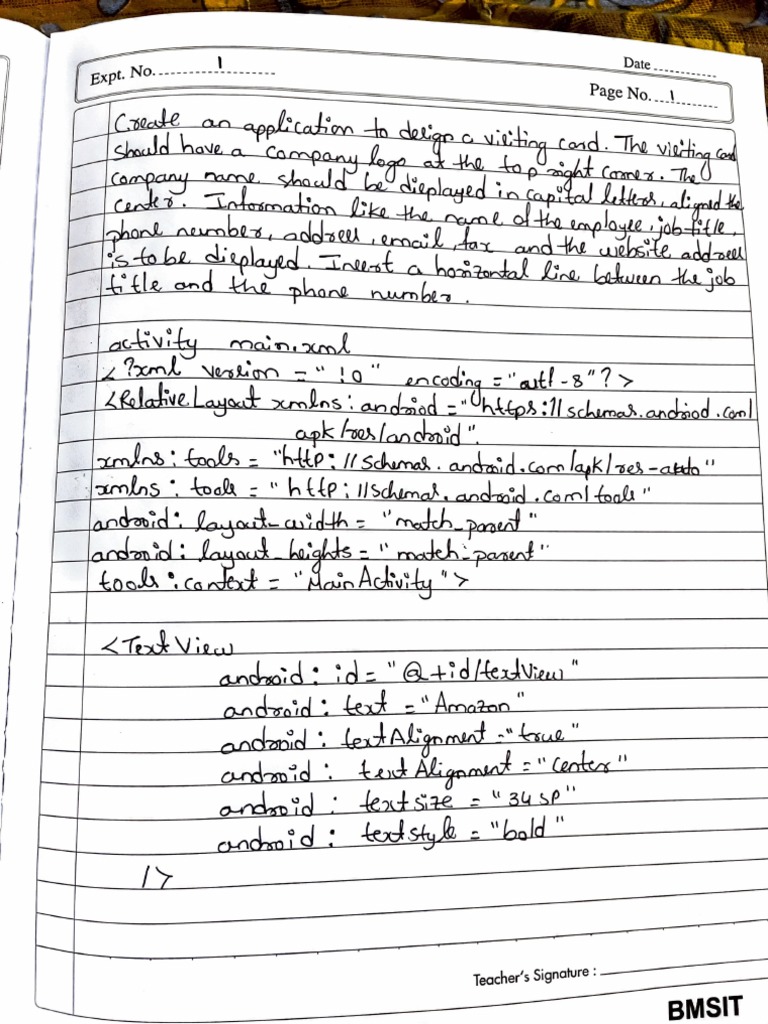 Expt. No. 1
Date
Page No. 1
Create an application to design a visiting card. The visiting card
should have a company logo at the top right corner. The
company name should be displayed in capital letters, aligned the
center. Information like the name of the employee, job title,
phone number, address, email, fax and the website address
is to be displayed. Insert a horizontal line between the job
title and the phone number.
activity main.xml
<?xml version = "1.0" encoding = "utf-8"?>
<Relative.Layout xmlns: android = "https://schemas.android.com/
apk/res/android".
xmlns: tools = "http://schemas.android.com/apk/res-auto"
xmlns: tools = "http://schemas.android.com/tools"
android: layout_width = "match_parent"
android: layout_heights = "match-parent"
tools: context = "MainActivity">
<TextView
android: id = "@+id/textView"
android: text = "Amazon"
android: textAlignment = "true"
android: textAlignment = "center"
android: textsize = "34 sp"
android: textstyle = "bold"
/>
Teacher's Signature :
BMSIT